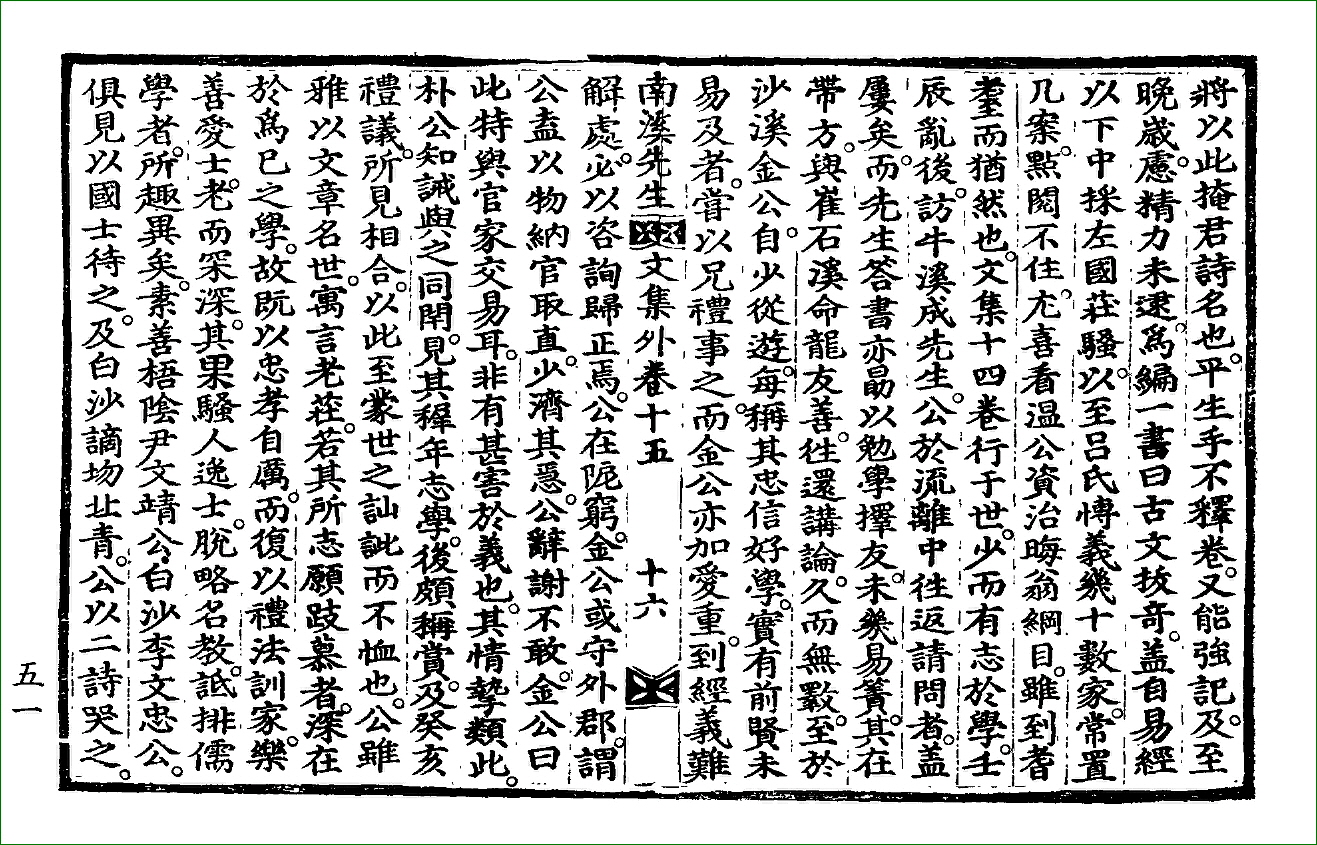 將以此掩君詩名也。平生手不釋卷。又能強記。及至
晚歲。慮精力未逮。爲編一書曰古文拔奇。盖自易經
以下中採左國莊騷。以至吕氏愽義。幾十數家。常置
几案。點閱不住。尤喜看温公資治晦翁綱目。雖到耆
耋而猶然也。文集十四卷行于世。少而有志於學。壬
辰亂後。訪牛溪成先生。公於流離中徃返請問者。盖
屢矣。而先生答書亦勖以勉學擇友。未幾易簀。其在
帶方。與崔石溪命龍友善。徃還講論。久而無斁。至於
沙溪金公。自少從遊。每稱其忠信好學。實有前賢未
易及者。嘗以兄禮事之。而金公亦加愛重。到經義難
南溪先生 文集外卷十五 十六
解處。必以咨詢歸正焉。公在阨窮。金公或守外郡。謂
公盍以物納官取直。少濟其急。公辭謝不敢。金公曰
此特與官家交易耳。非有甚害於義也。其情摯類此。
朴公知誡與之同閈。見其稺年志學。後頗稱賞。及癸亥
禮議。所見相合。以此至蒙世之訕訿而不恤也。公雖
雅以文章名世。寓言老莊。若其所志願跂慕者。深在
於爲已之學。故旣以忠孝自厲。而復以禮法訓家。樂
善愛士。老而深深。其果騷人逸士。脫略名教。詆排儒
學者。所趣異矣。素善梧陰尹文靖公,白沙李文忠公。
俱見以國士待之。及白沙謫㘯北青。公以二詩哭之。
五一